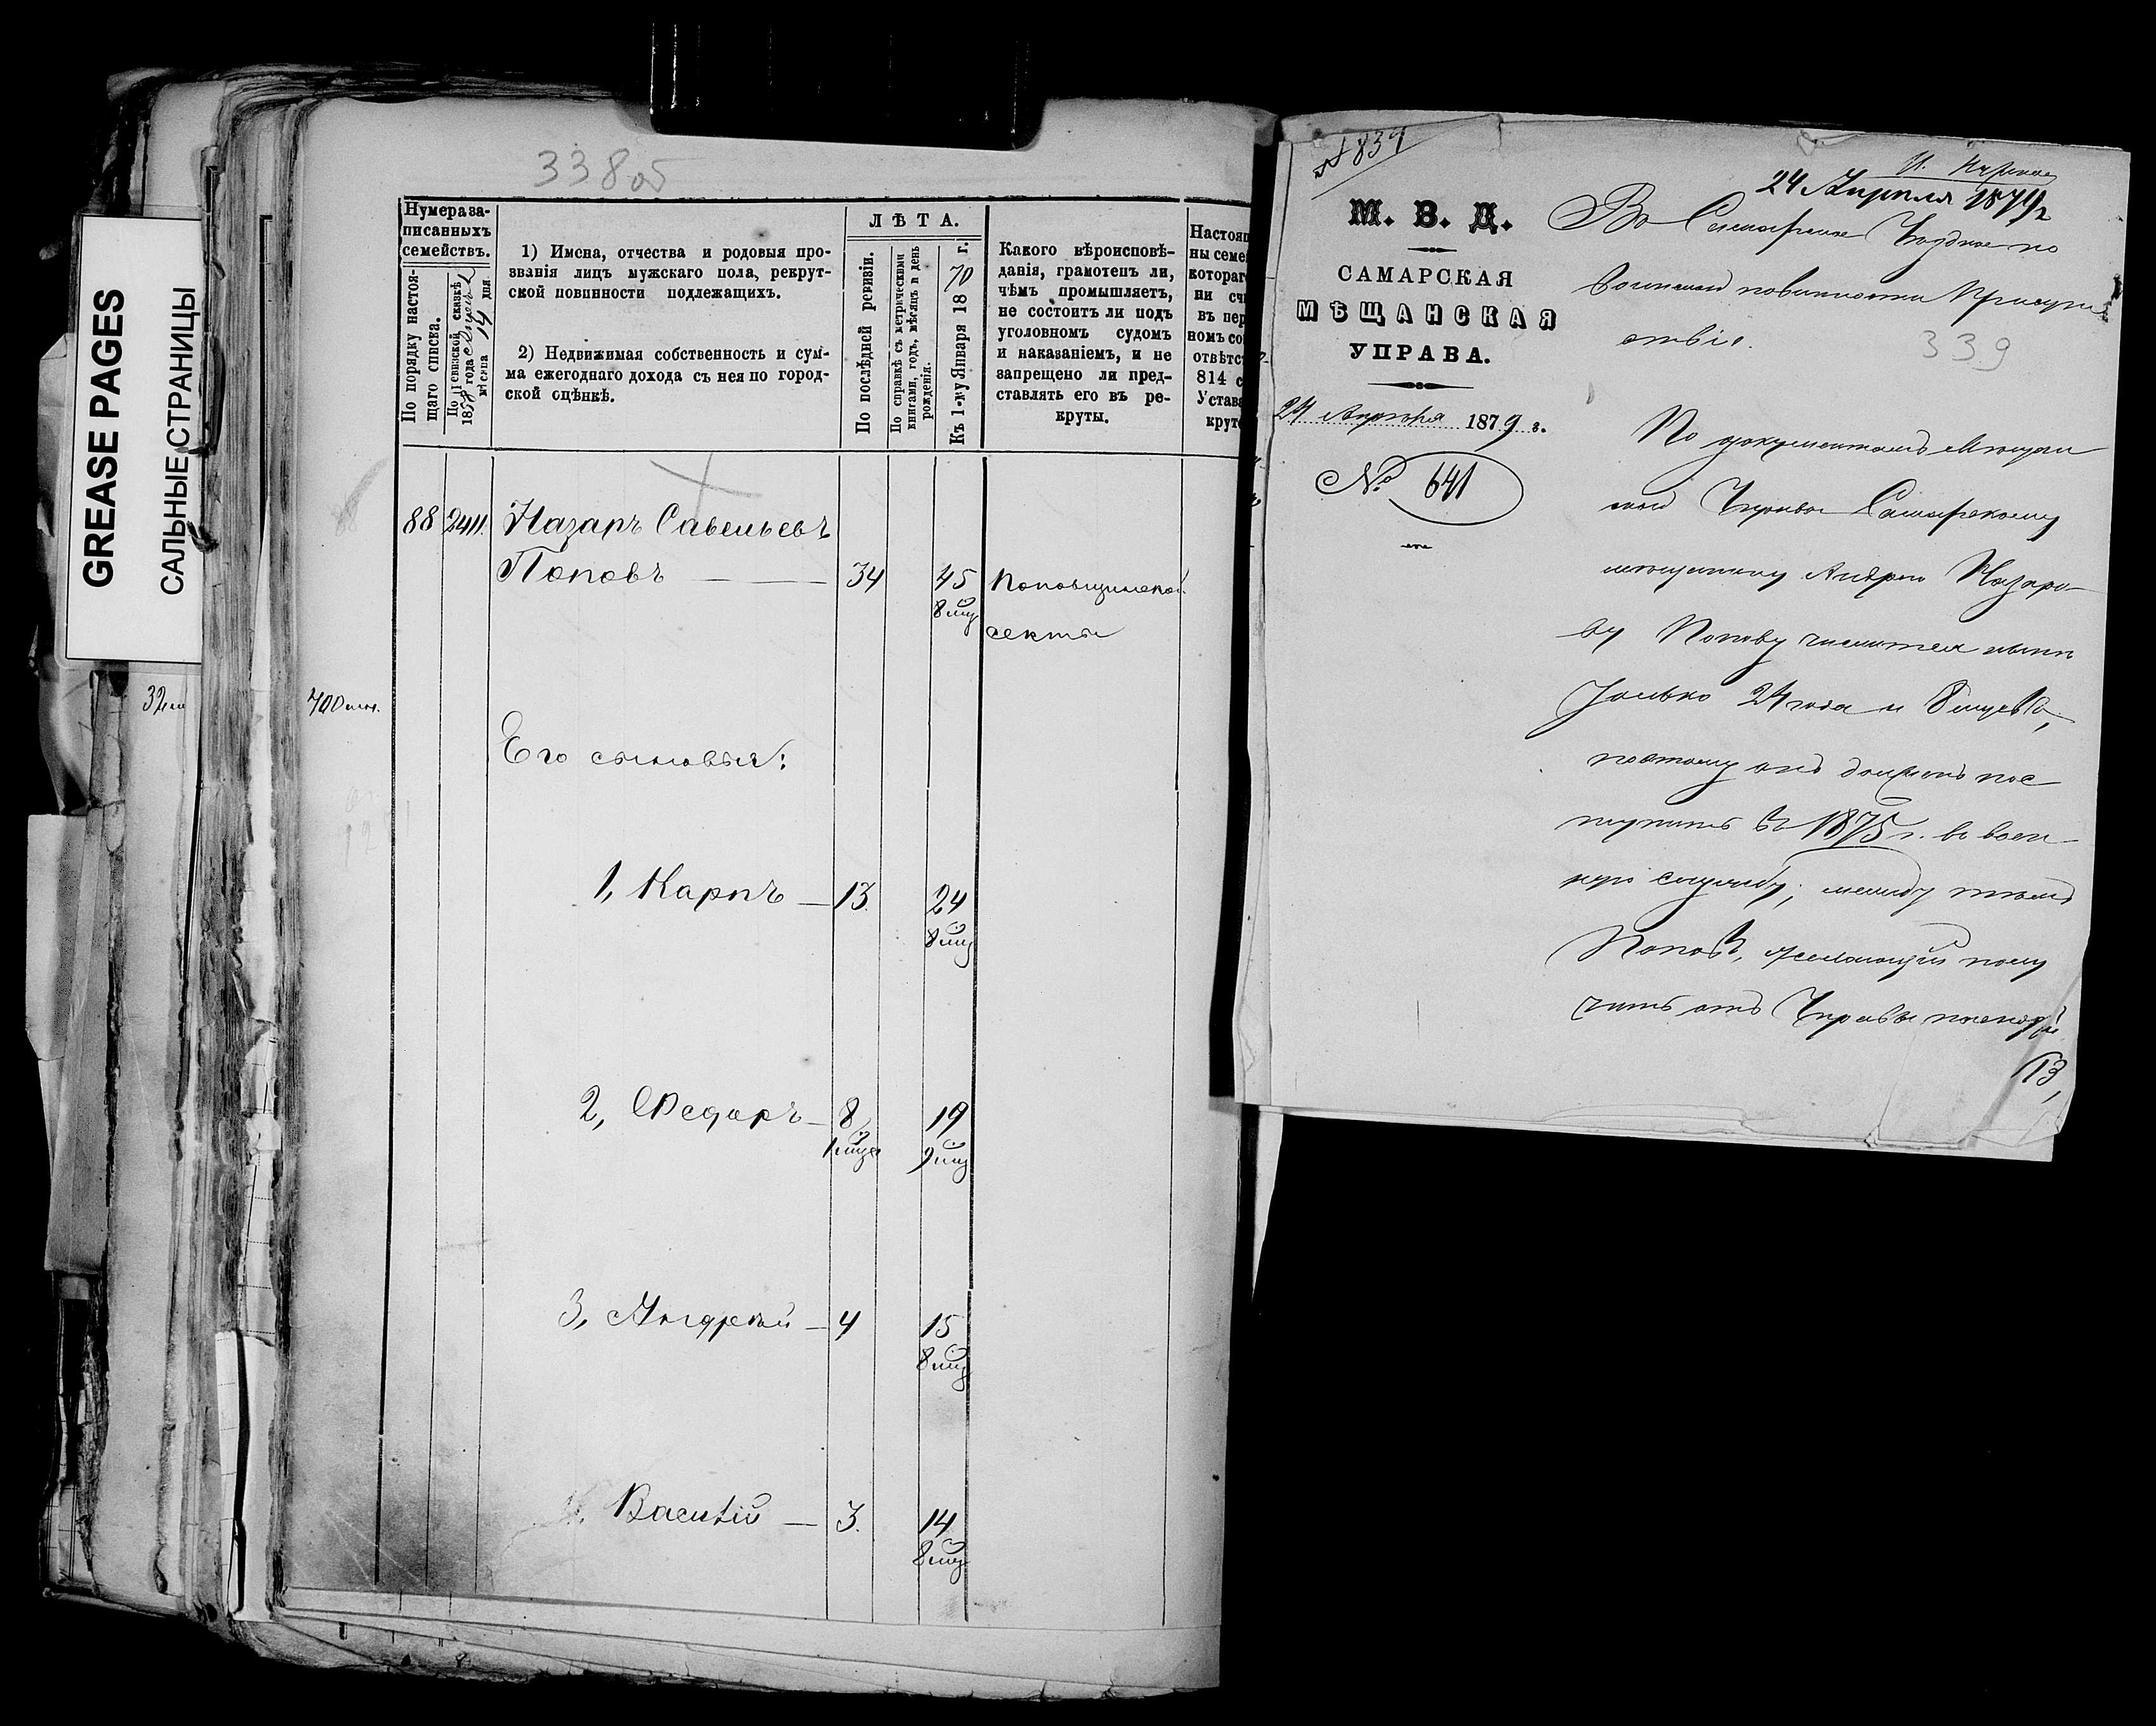 GREASE PAGES
САЛЬНЫЕ СТРАНИЦЫ
338об
Нумера за-
писанныхъ
семействъ.
По порядку настоя-
щаго списка.
По ревизской сказкѣ
1858 года
мѣсяца 14 дня.
1) Имена, отчества и родовыя про-
званія лицъ мужскаго пола, рекрут-
ской повинности подлежащихъ.
2) Недвижимая собственность и сум-
ма ежегоднаго дохода съ нея по город-
ской оцѣнкѣ.
ЛѢТА.
По послѣдней ревизіи.
По справкѣ съ метрическими
книгами, годъ, мѣсяцъ и день
рожденія.
Къ 1-му Января 1870 г.
Какого вѣроисповѣ-
данія, грамотенъ ли,
чѣмъ промышляетъ,
не состоитъ ли подъ
уголовномъ судомъ
и наказаніемъ, и не
запрещено ли пред-
ставлять его въ ре-
круты.
Настоящ
ны семе
котораг
ни сч
въ пер
номъ со
отвѣтс
814 с
Устава
крут
88 2411. Назаръ Савельевъ
Поповъ — 34 45 Поповщинской
8 мц секты
32
Его сыновья:
1, Карпъ — 13. 24
8 мц
2, Федоръ — 8 19
1 мца 9 мц
3, Андрей — 4 15
8 мц
Василій — 3. 14
8 мц
№ 839
24 Апреля 1879 г.
М. В. Д.
САМАРСКАЯ
МѢЩАНСКАЯ
УПРАВА.
24 Апрѣля 1879 г.
№ 641
Въ Самарское Уѣздное по
воинской повинности Присут
ствіе.
339
По документамъ Мѣщан
ской Управы Самарскому
мѣщанину Андрею Назаро-
ву Попову числится нынѣ
только 24 года и 8 мцевъ,
поэтому онъ долженъ пос
тупить въ 1875 г. въ воен-
ную службу; между тѣмъ
Поповъ, желающій полу
чить отъ Управы